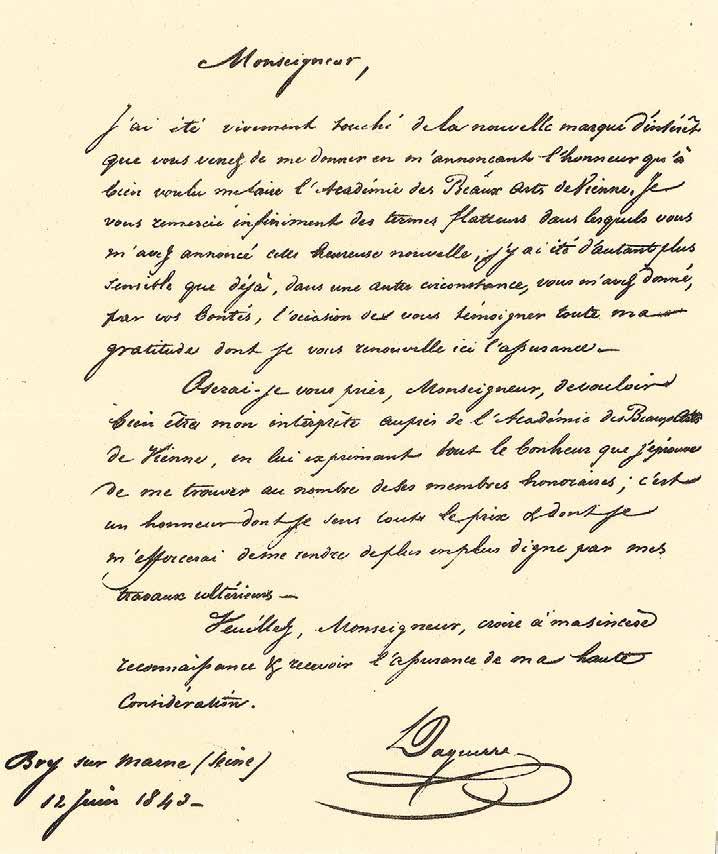 Monseigneur,
J'ai été vivement touché de la nouvelle marque d'intérêt
que vous venez de me donner en m'annonçant l'honneur qu'a
bien voulu me faire l'Académie des Beaux Arts de Vienne. Je
vous remercie infiniment des termes flatteurs dans lesquels vous
m'avez annoncé cette heureuse nouvelle; j'y ai été d'autant plus
sensible que déjà, dans une autre circonstance, vous m'avez donné,
par vos bontés, l'occasion de vous témoigner toute ma
gratitude dont je vous renouvelle ici l'assurance _
Oserai-je vous prier, Monseigneur, de vouloir
bien être mon interprète auprès de l'Académie des Beaux Arts
de Vienne, en lui exprimant tout le bonheur que j'éprouve
de me trouver au nombre de ses membres honoraires; c'est
un honneur dont je sens toute le prix & dont je
m'efforcerai de me rendre de plus en plus digne par mes
travaux ultérieurs _
Veuillez, Monseigneur, croire à ma sincère
reconnaissance & recevoir l'assurance de ma haute
Considération.
LDaguerre
Bry sur Marne (Seine)
12 Juin 1843 _